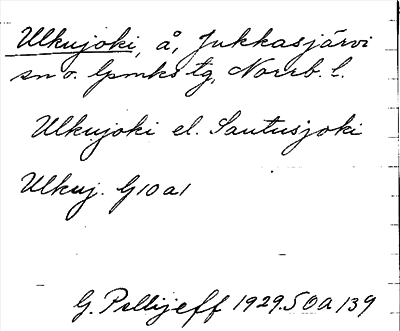 Ulkujoki, å, Jukkasjärvi
sn o. lpmks tg, Norrb. l.
Ulkujoki el. Sautusjoki
Ulkuj. G10a1
G. Pellijeff 1929. S 0a 139